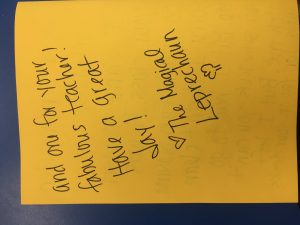 and one for your
fabulous teacher!
Have a great
day!
♡ The Magical
Leprechaun